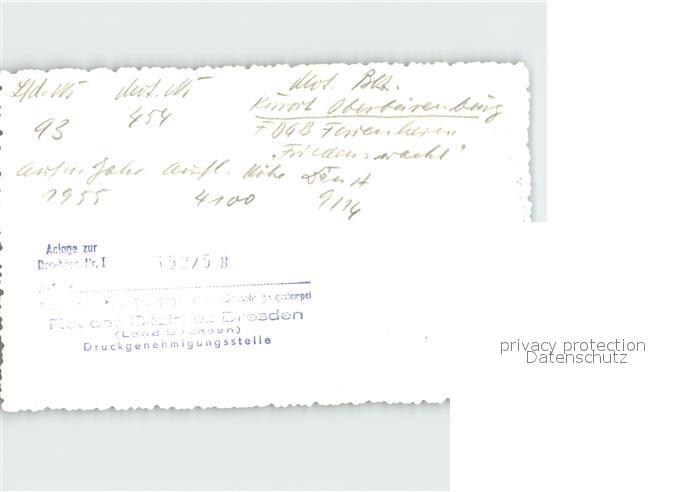 Lfd. Nr Mot. Nr Mot. Bez.
93 454 Kurort Oberbärenburg
FDGB Ferienheim
"Friedenswacht"
Aufn. Jahr Aufl. Höhe
1955 4100 9/14
Anlage zur
Drucksen. Nr. I 152/58
Rat des Bezirkes Dresden
(Land Sachsen)
Druckgenehmigungsstelle
privacy protection
Datenschutz